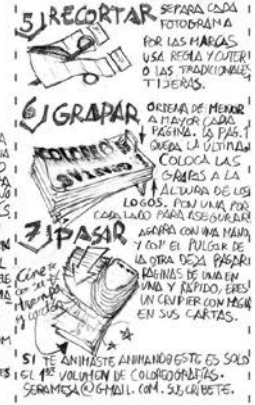 5) RECORTAR
SEPARA CADA
FOTOGRAMA
POR LAS MARCAS
USA REGLA Y CUTER
O LAS TRADICIONALES
TIJERAS.
6) GRAPAR
ORDENA DE MENOR
A MAYOR CADA
PÁGINA. LA PÁG. 1
QUEDA LA ÚLTIMA
COLOCA LAS
GRAPAS A LA
ALTURA DE LOS
LOGOS. PON UNA POR
CADA LADO PARA ASEGURAR!
COLOREO
7) PASAR
AGARRA CON UNA MANO,
Y CON EL PULGAR DE
LA OTRA DEJA PASAR
PÁGINAS DE UNA EN
UNA Y RÁPIDO, ERES
UN CRUPIER CON MAGIA
EN SUS CARTAS.
Cine
SI TE ANIMASTE ANIMANDO ESTE ES SOLO
EL 1er VOLUMEN DE COLOREOGRAFÍAS.
SERAMESA@GMAIL.COM. SUSCRÍBETE.